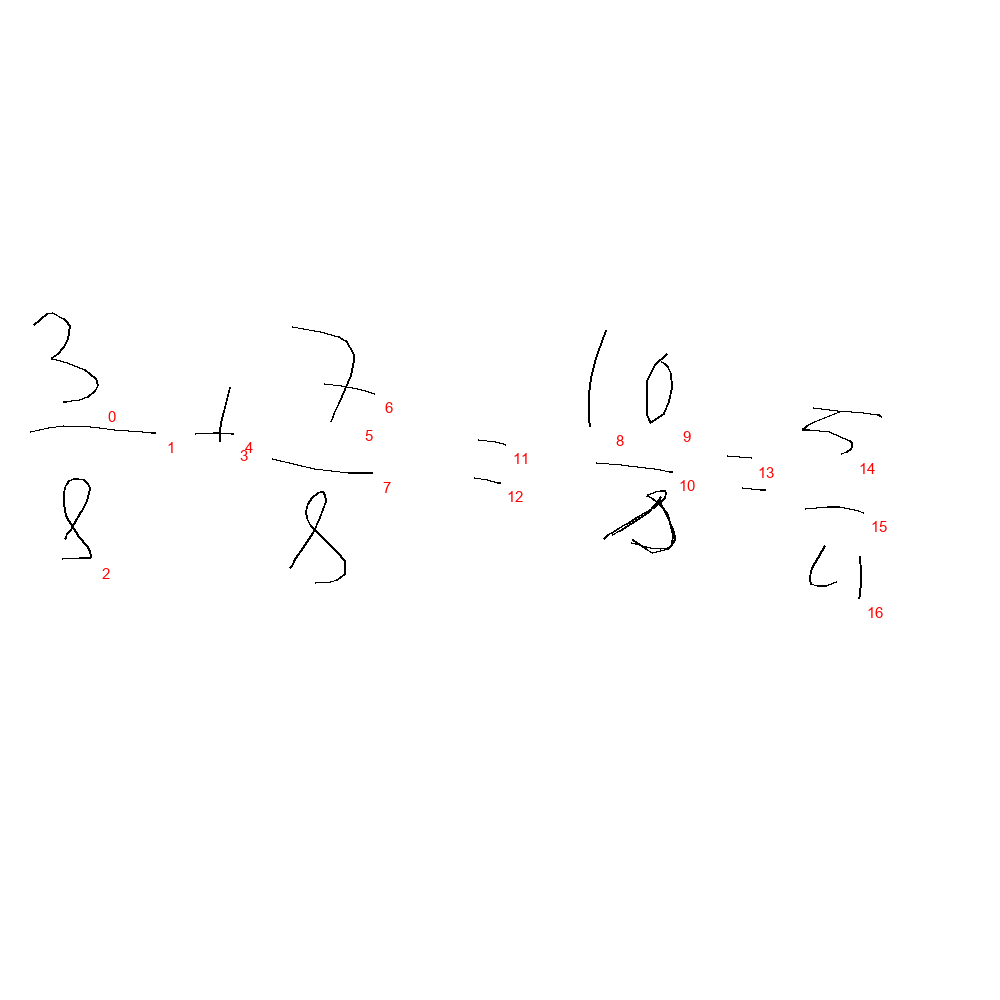 3/8 + 7/8 = 10/8 = 5/4
0 1 2 3 4 5 6 7 8 9 10 11 12 13 14 15 16